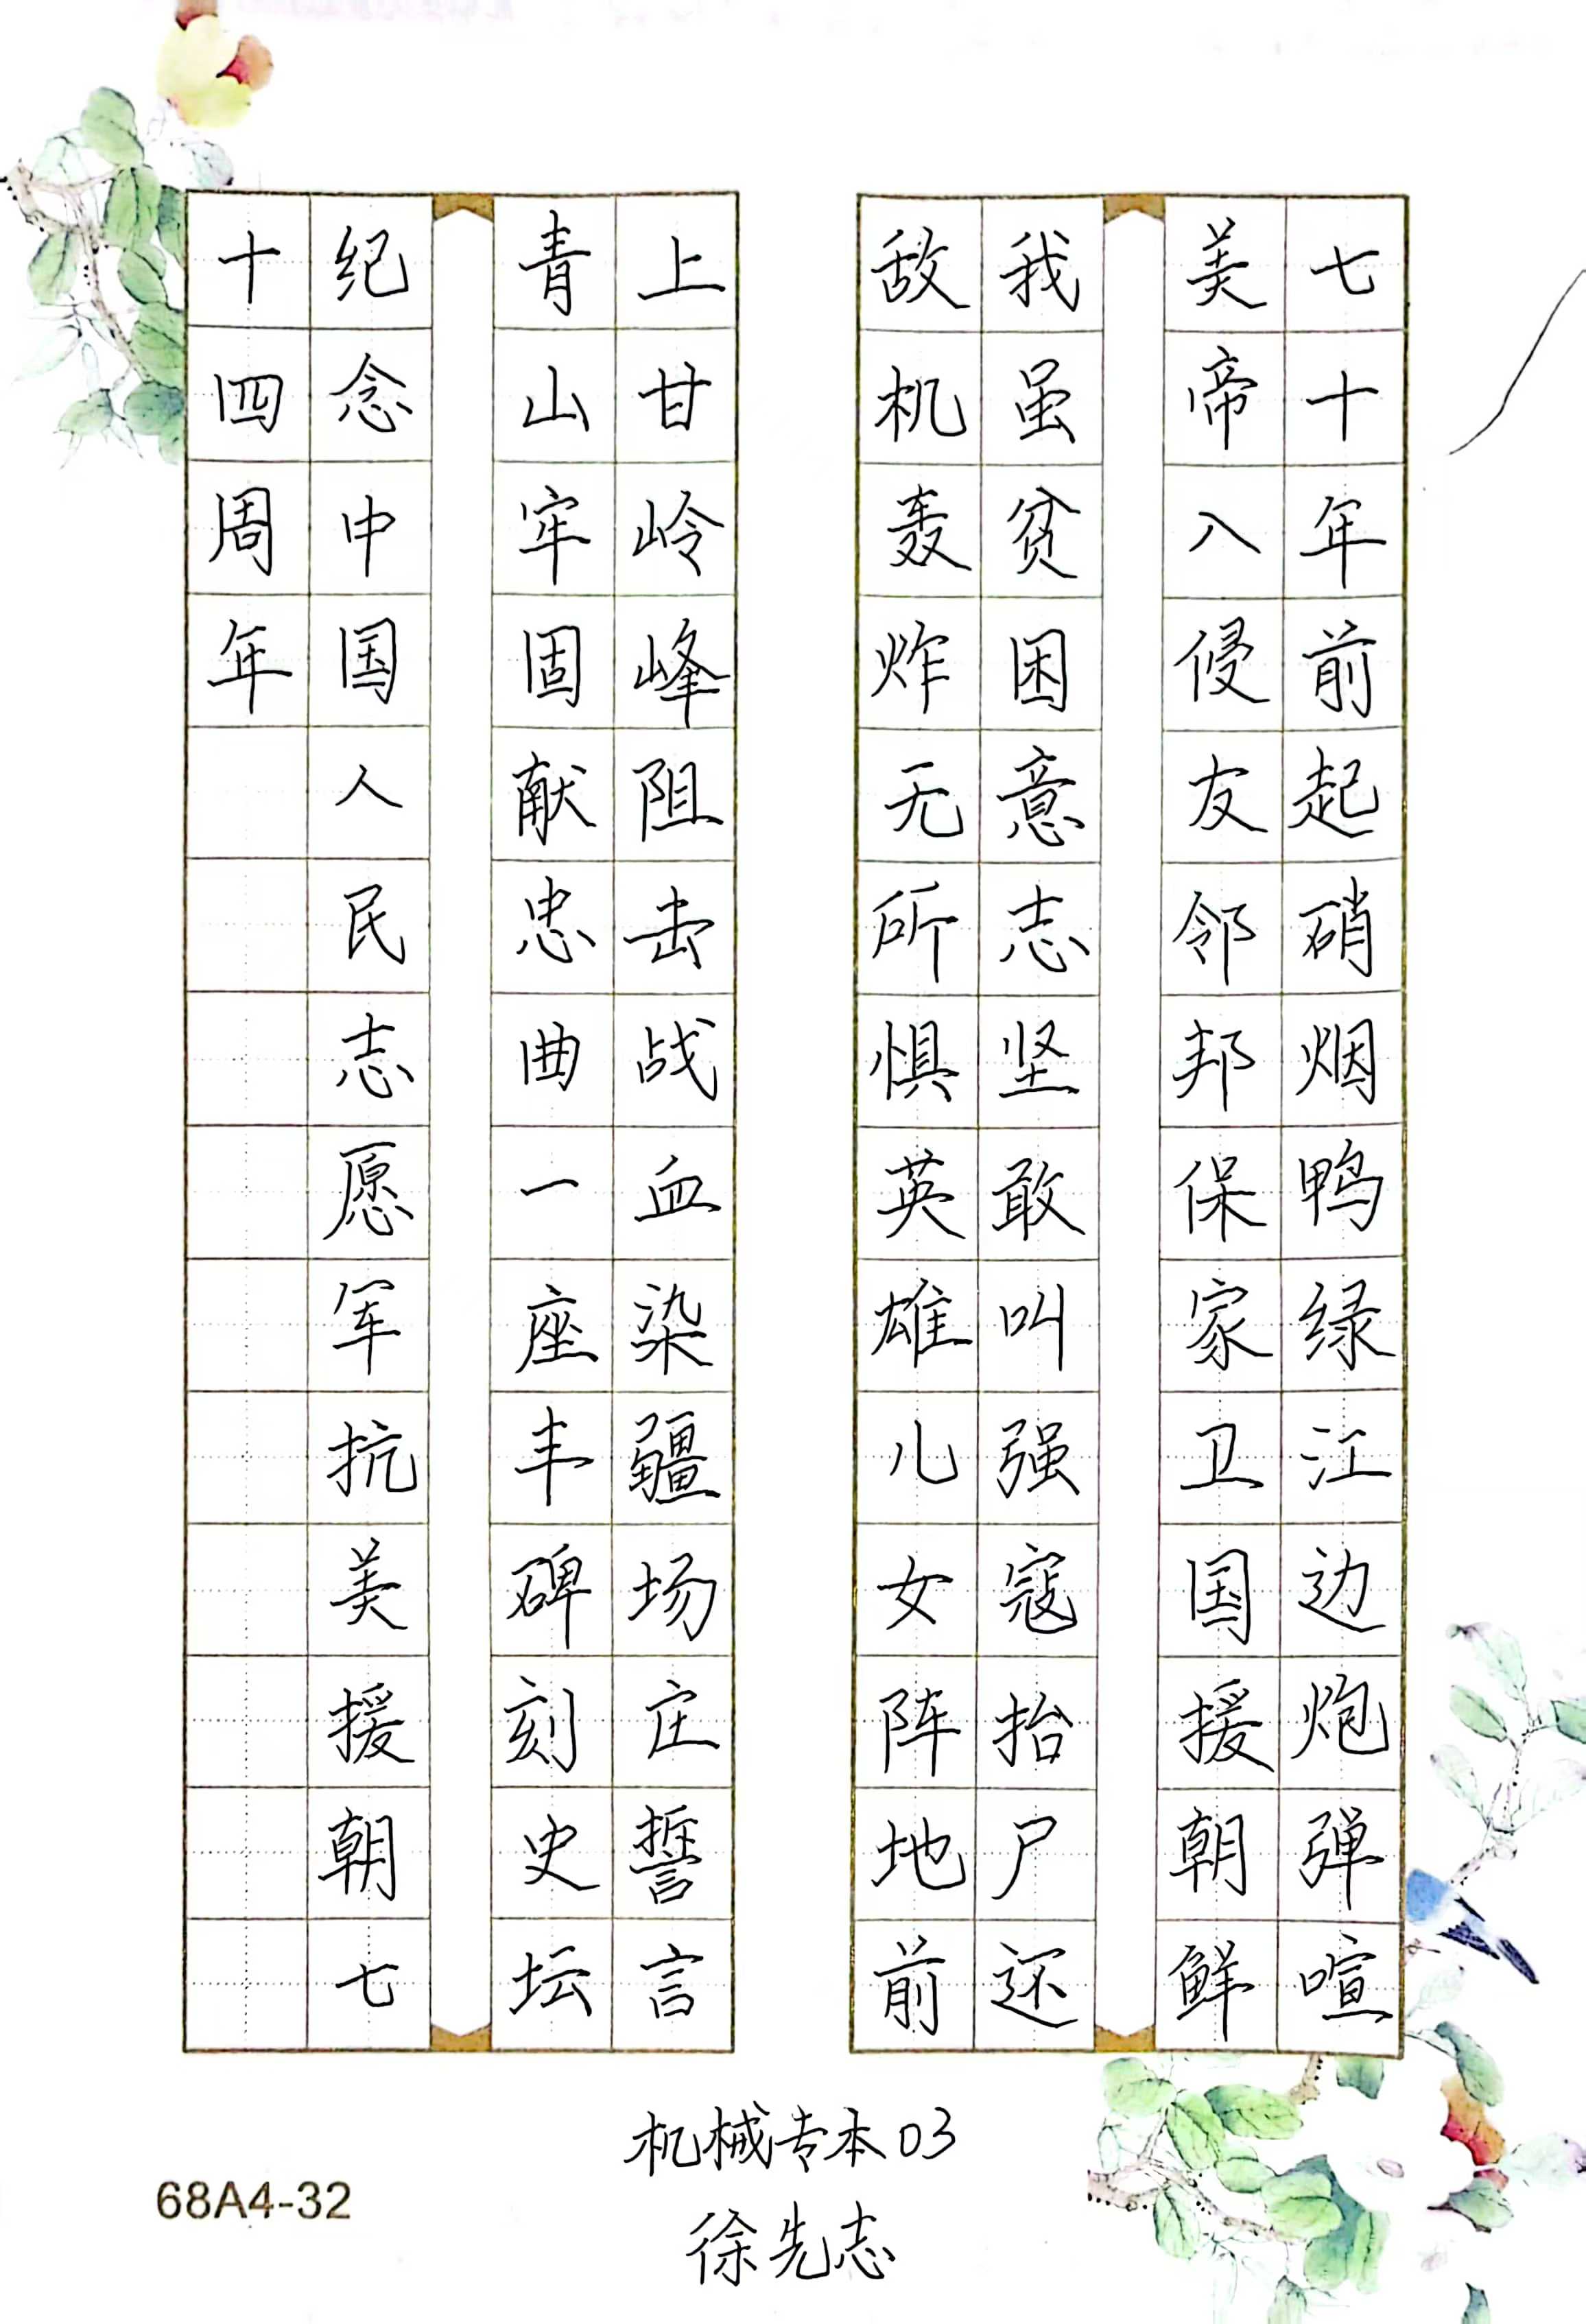 七十年前起硝烟鸭绿江边炮弹喧
美帝入侵友邻邦保家卫国援朝鲜
我虽贫困意志坚敢叫强寇抬尸还
敌机轰炸无所惧英雄儿女阵地前
上甘岭峰阻击战血染疆场庄誓言
青山牢固献忠曲一座丰碑刻史坛
纪念中国人民志愿军抗美援朝七
十四周年
机械专本03
徐先志
68A4-32